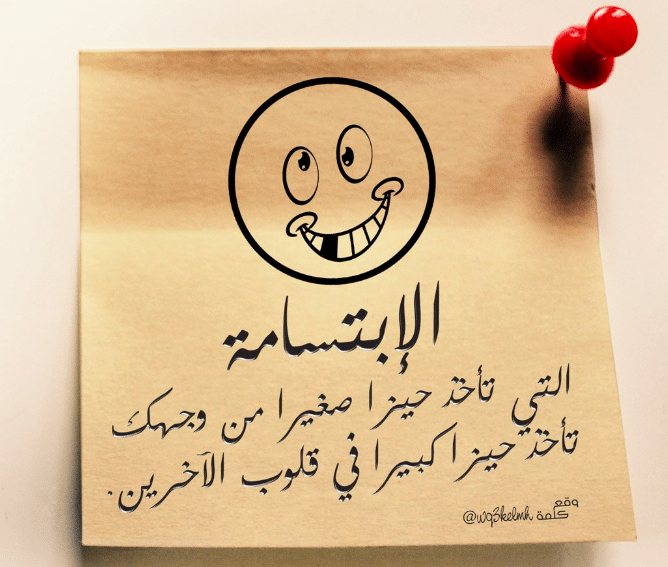 الإبتسامة
التي تأخذ حيزا صغيرا من وجهك
تأخذ حيزا كبيرا في قلوب الآخرين.
وقع
كلمة @wq3kelmh